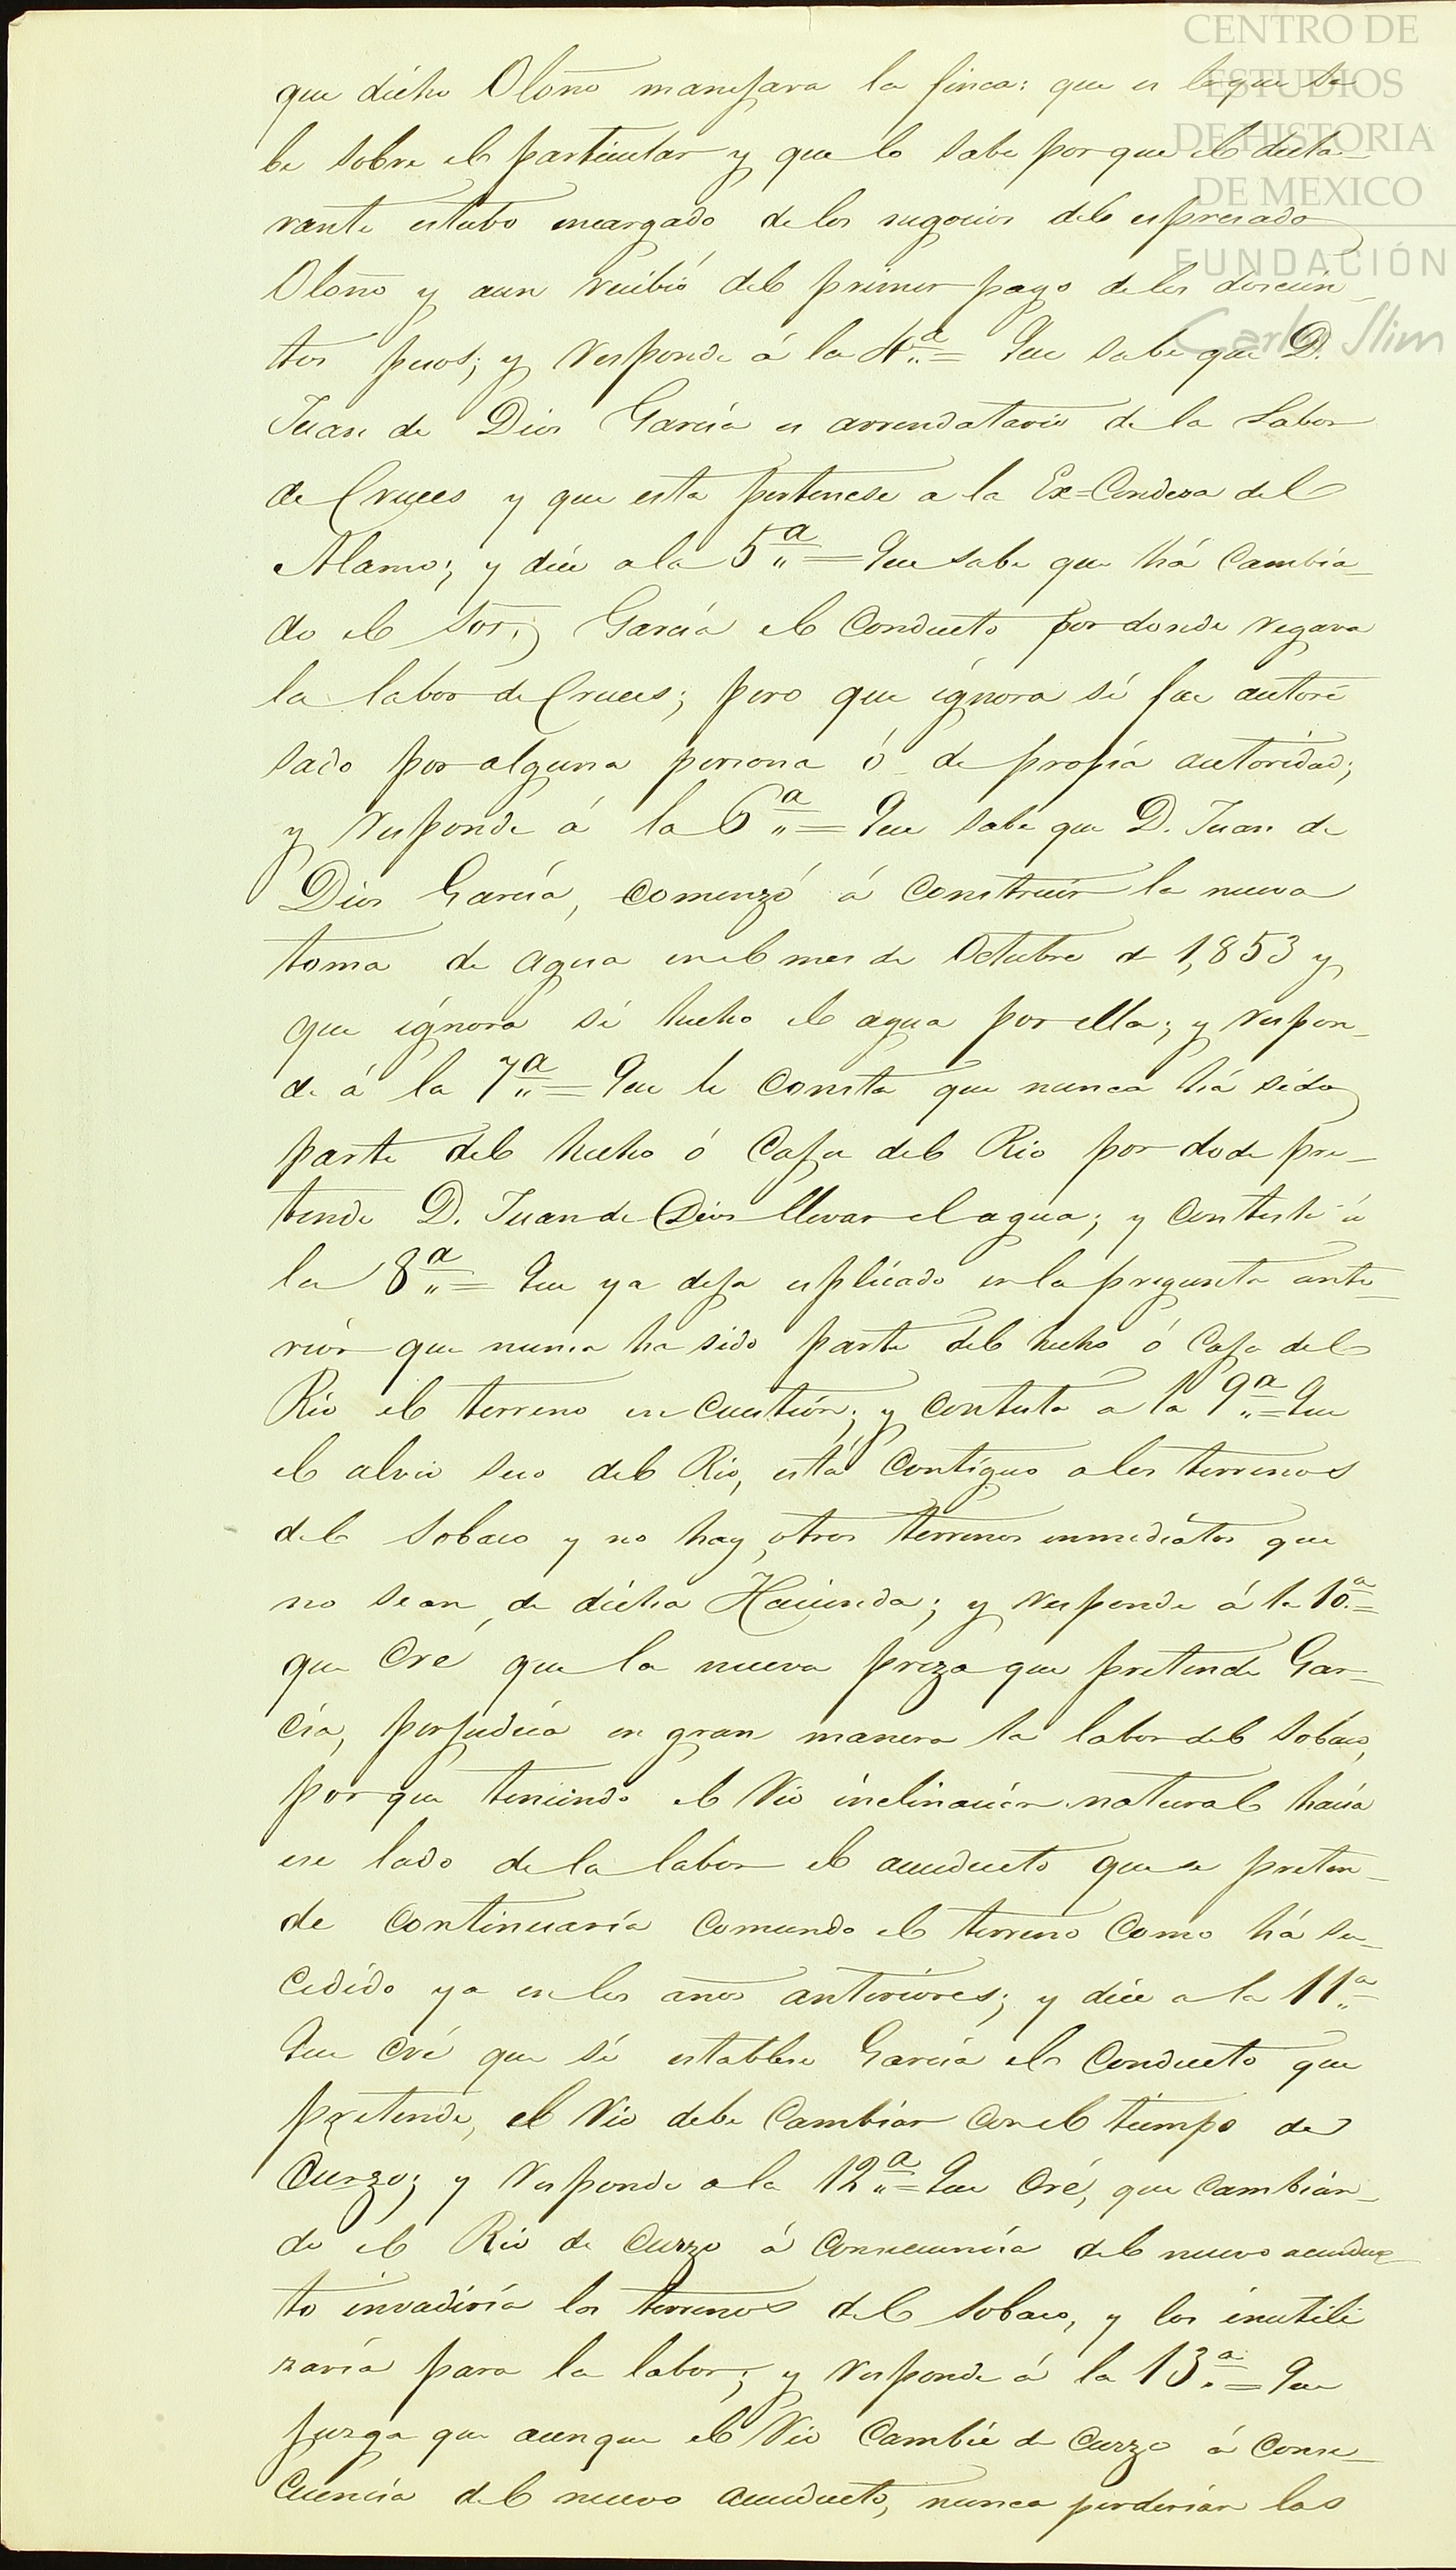 CENTRO DE
ESTUDIOS
DE HISTORIA
DE MEXICO
FUNDACIÓN
Carlos Slim
que dicho Oloño manejara la finca: que es lo que sa
be sobre el particular y que lo sabe por que el decla-
rante estubo encargado de los negocios del espresado
Oloño y aun recibió del primer pago de los doscien-
tos pesos; y responde á la 4.ª = Que sabe que D.
Juan de Dios García es arrendatario de la Labor
de Cruces y que esta pertenese a la Ex=Condesa del
Alamo; y dice a la 5.ª = Que sabe que há cambia-
do el Sor. García el conducto por donde regava
la labor de Cruces; pero que ignora sí fue autori
sado por alguna persona ó de propia autoridad;
y responde á la 6.ª = Que sabe que D. Juan de
Dios García, comenzó á construir la nueva
toma de agua en el mes de Octubre de 1,853 y
que ignora si hecho el agua por ella; y respon-
de á la 7.ª = Que le consta que nunca há sido
parte del hecho ó Caja del Rio por dode pre-
tende D. Juan de Dios llevar el agua; y contesta á
la 8.ª = Que ya deja esplicado en la pregunta ante-
rior que nunca ha sido parte del hecho ó Caja del
Rio el terreno en cuestión; y contesta a la 9.ª = Que
el alvio seco del Rio, está contiguo a los terrenos
del Sobaco y no hay otros terrenos inmediatos que
no sean de dicha Hacienda; y responde á la 10.ª =
que cré que la nueva preza que pretende Gar-
cía, perjudica en gran manera la labor del Sobaco,
por que teniendo el Rio inclinación natural hacia
ese lado de la labor el acueducto que se preten-
de continuaría comiendo el terreno como há su-
cedido ya en los años anteriores; y dice a la 11.ª
Que cré que sí establese García el conducto que
pretende, el Rio debe cambiar con el tiempo de
curzo; y responde a la 12.ª = Que cré, que cambian-
do el Rio de curzo á consecuencia del nuevo acueduc-
to invadiría los terrenos del Sobaco, y los inutili
zaría para la labor; y responde á la 13.ª = Que
juzga que aunque el Rio cambie de curzo á conse-
cuencia del nuevo acueducto, nunca perderían las